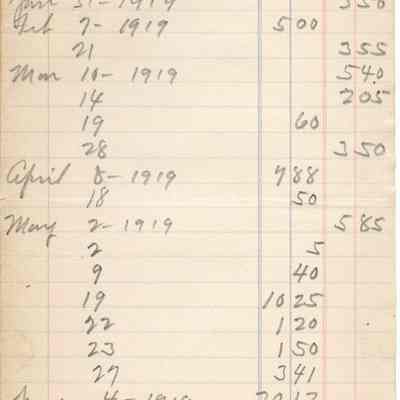 31 - 1919 3 50
Feb 7 - 1919 5 00
21 3 55
Mar 10 - 1919 5 40
14 2 05
19 60
28 3 50
April 8 - 1919 7 88
18 50
May 2 - 1919 5 85
2 5
9 40
19 10 25
22 1 20
23 1 50
27 3 41
4 - 1919